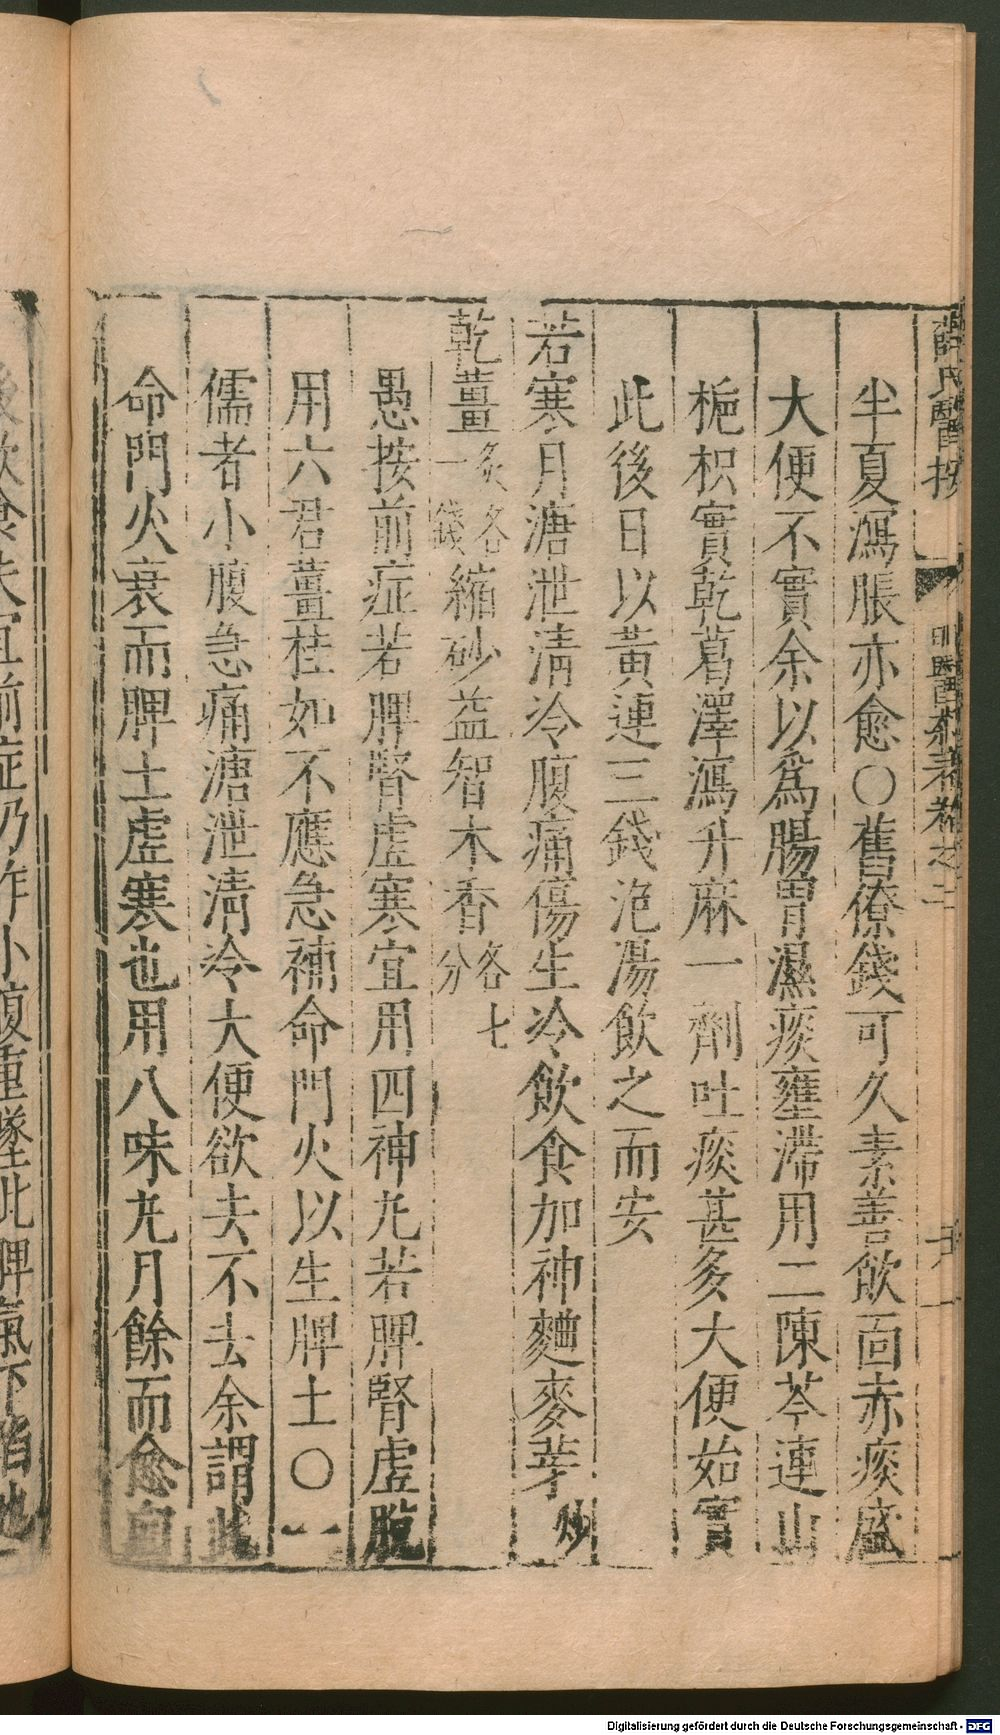 薛氏醫按
明醫雜著卷之二
半夏瀉脹亦愈○舊僚錢可久素善飲面赤痰盛
大便不實余以為腸胃濕痰壅滯用二陳芩連山
梔枳實乾葛澤瀉升麻一劑吐痰甚多大便始實
此後日以黃連三錢泡湯飲之而安
若寒月溏泄清冷腹痛傷生冷飲食加神麯麥芽炒
乾薑炙各一錢縮砂益智木香各七分
愚按前症若脾腎虛寒宜用四神丸若脾腎虛脫
用六君薑桂如不應急補命門火以生脾土○一
儒者小腹急痛溏泄清冷大便欲去不去余謂此
命門火衰而脾土虛寒也用八味丸月餘而愈向
後飲食失宜前症仍作小腹重墜此脾氣下陷也
Digitalisierung gefördert durch die Deutsche Forschungsgemeinschaft - DFG